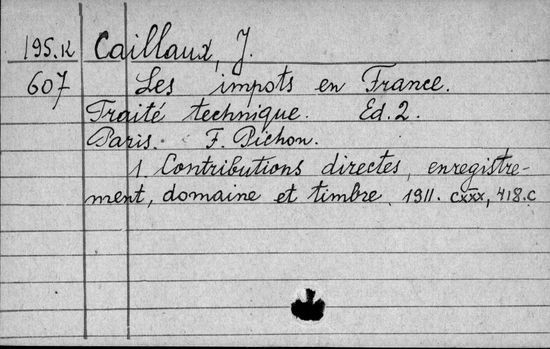 195.K Caillaux, J.
607 Les impots en France.
Traité technique. Ed. 2.
Paris. F. Pichon.
1. Contributions directes, enregistre-
ment, domaine et timbre. 1911. cxxx, 418.c